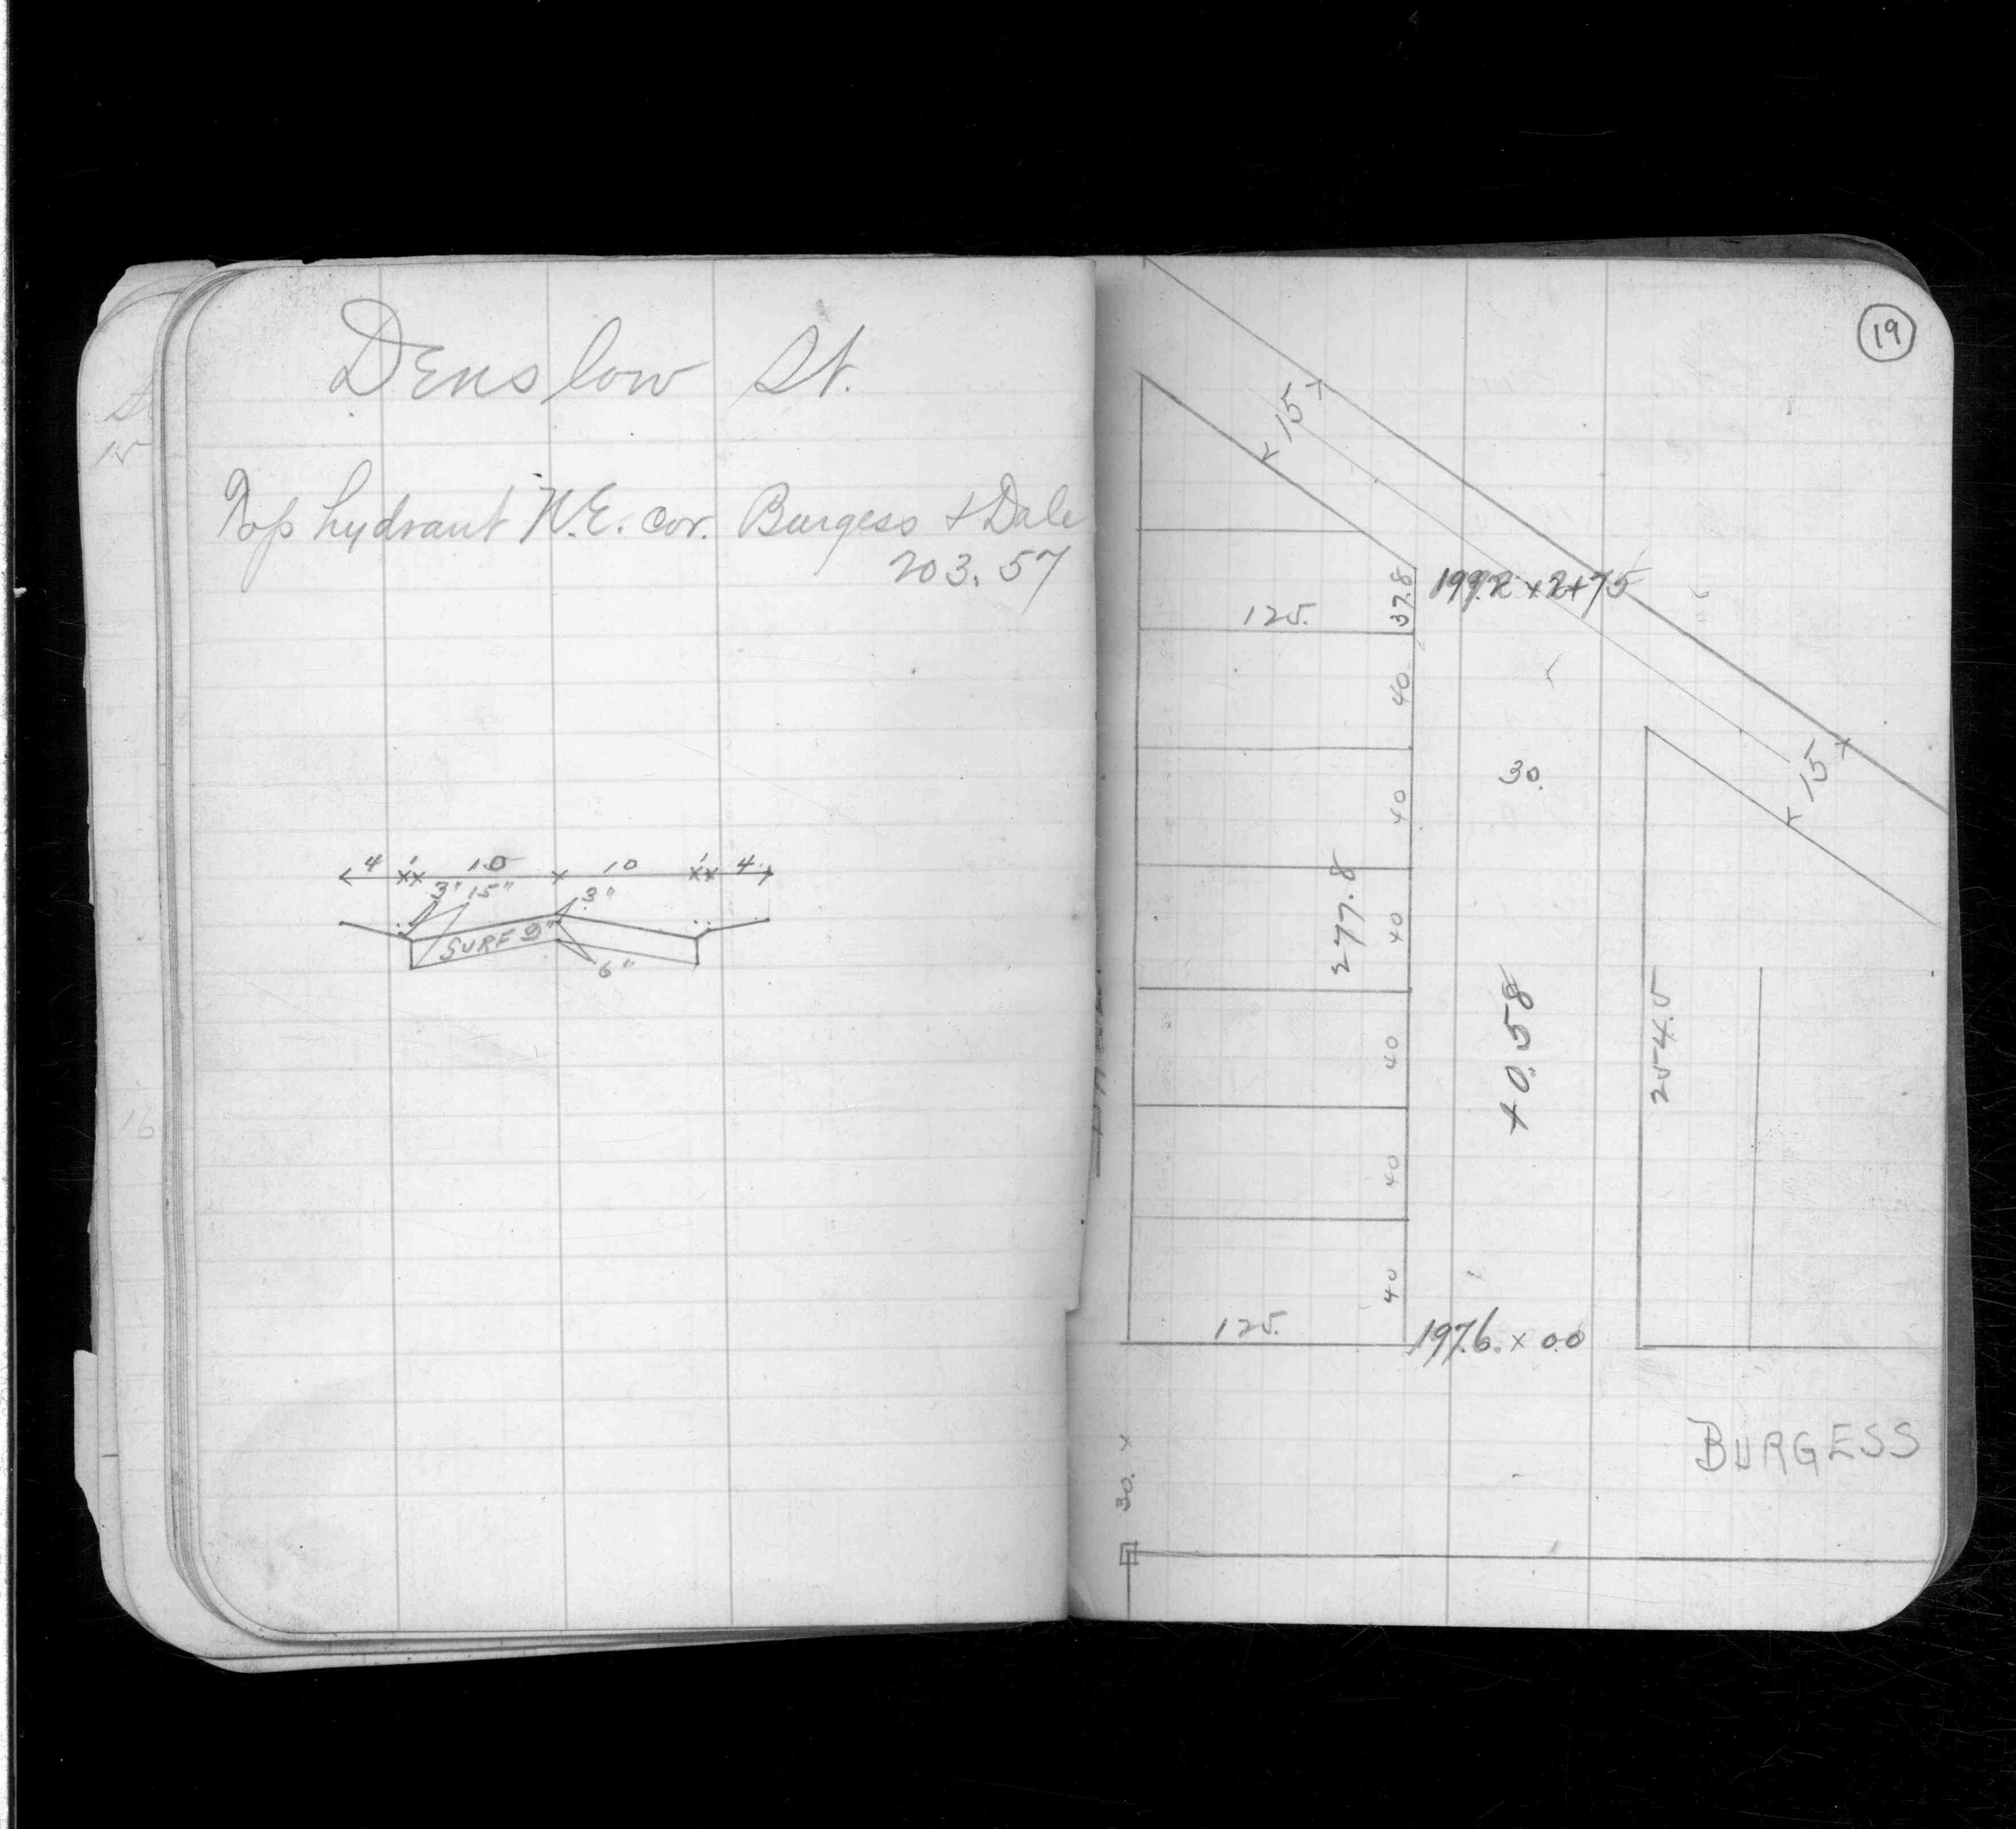 Denslow St.
Top hydrant N.E. cor. Burgess & Dale
203.57
4 1 10 10 1 4
3" 15" 3"
SURF 9"
6"
16
19
15
37.8
199.2 x 2+75
125.
40
30.
15
40
277.8
40
+0.58
254.5
40
40
40
125.
197.6 x 0.0
BURGESS
30. x